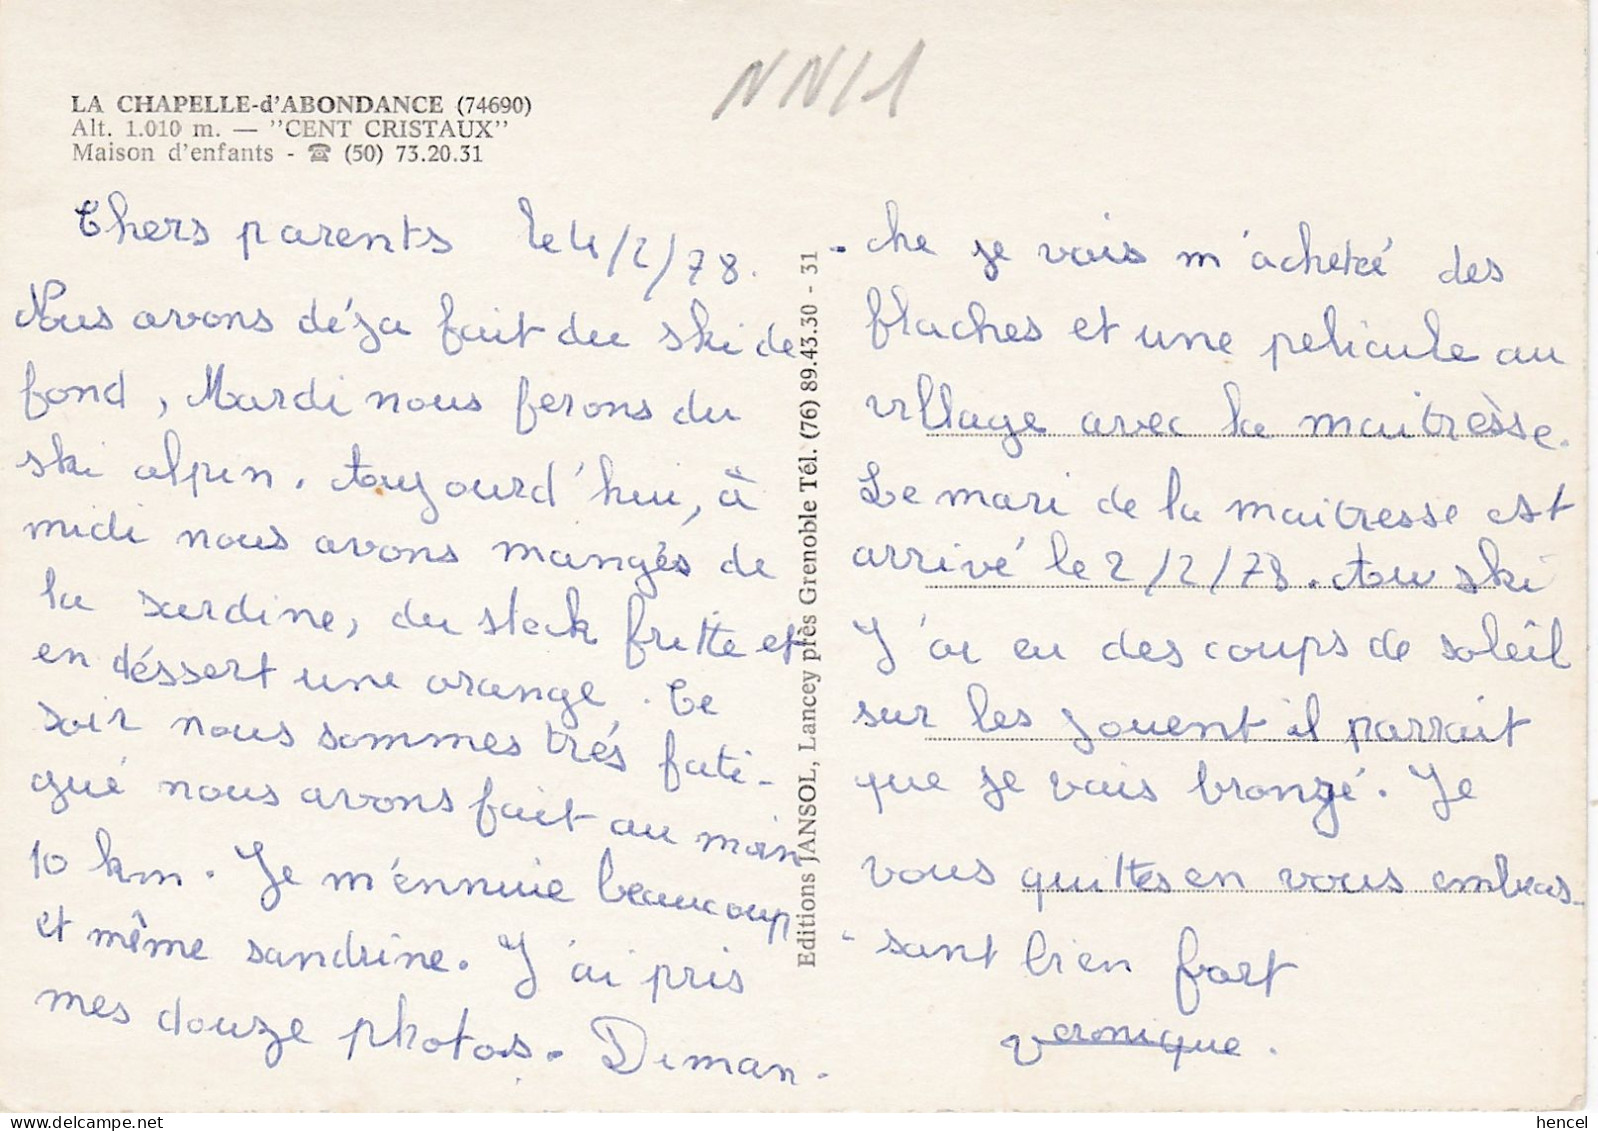 NN11
LA CHAPELLE-d'ABONDANCE (74690)
Alt. 1.010 m. — "CENT CRISTAUX"
Maison d'enfants - ☎ (50) 73.20.31
Chers parents le 4/2/78.
Nous avons déja fait du ski de
fond, Mardi nous ferons du
ski alpin. Aujourd'hui, à
midi nous avons mangés de
la sardine, du steck fritte et
en déssert une orange. Ce
soir nous sommes trés fati-
gué nous avons fait au moin
10 km. Je m'ennuie beaucoup
et même sandrine. J'ai pris
mes douze photos. Diman-
Editions JANSOL, Lancey près Grenoble Tél. (76) 89.43.30 - 31
-che je vais m'acheté des
flaches et une pelicule au
village avec la maitrèsse.
Le mari de la maitresse est
arrivé le 2/2/78. Au ski
J'ai eu des coups de soleil
sur les jouent il parrait
que je vais bronzé. Je
vous quittes en vous embras-
-sant bien fort
veronique.
hencel